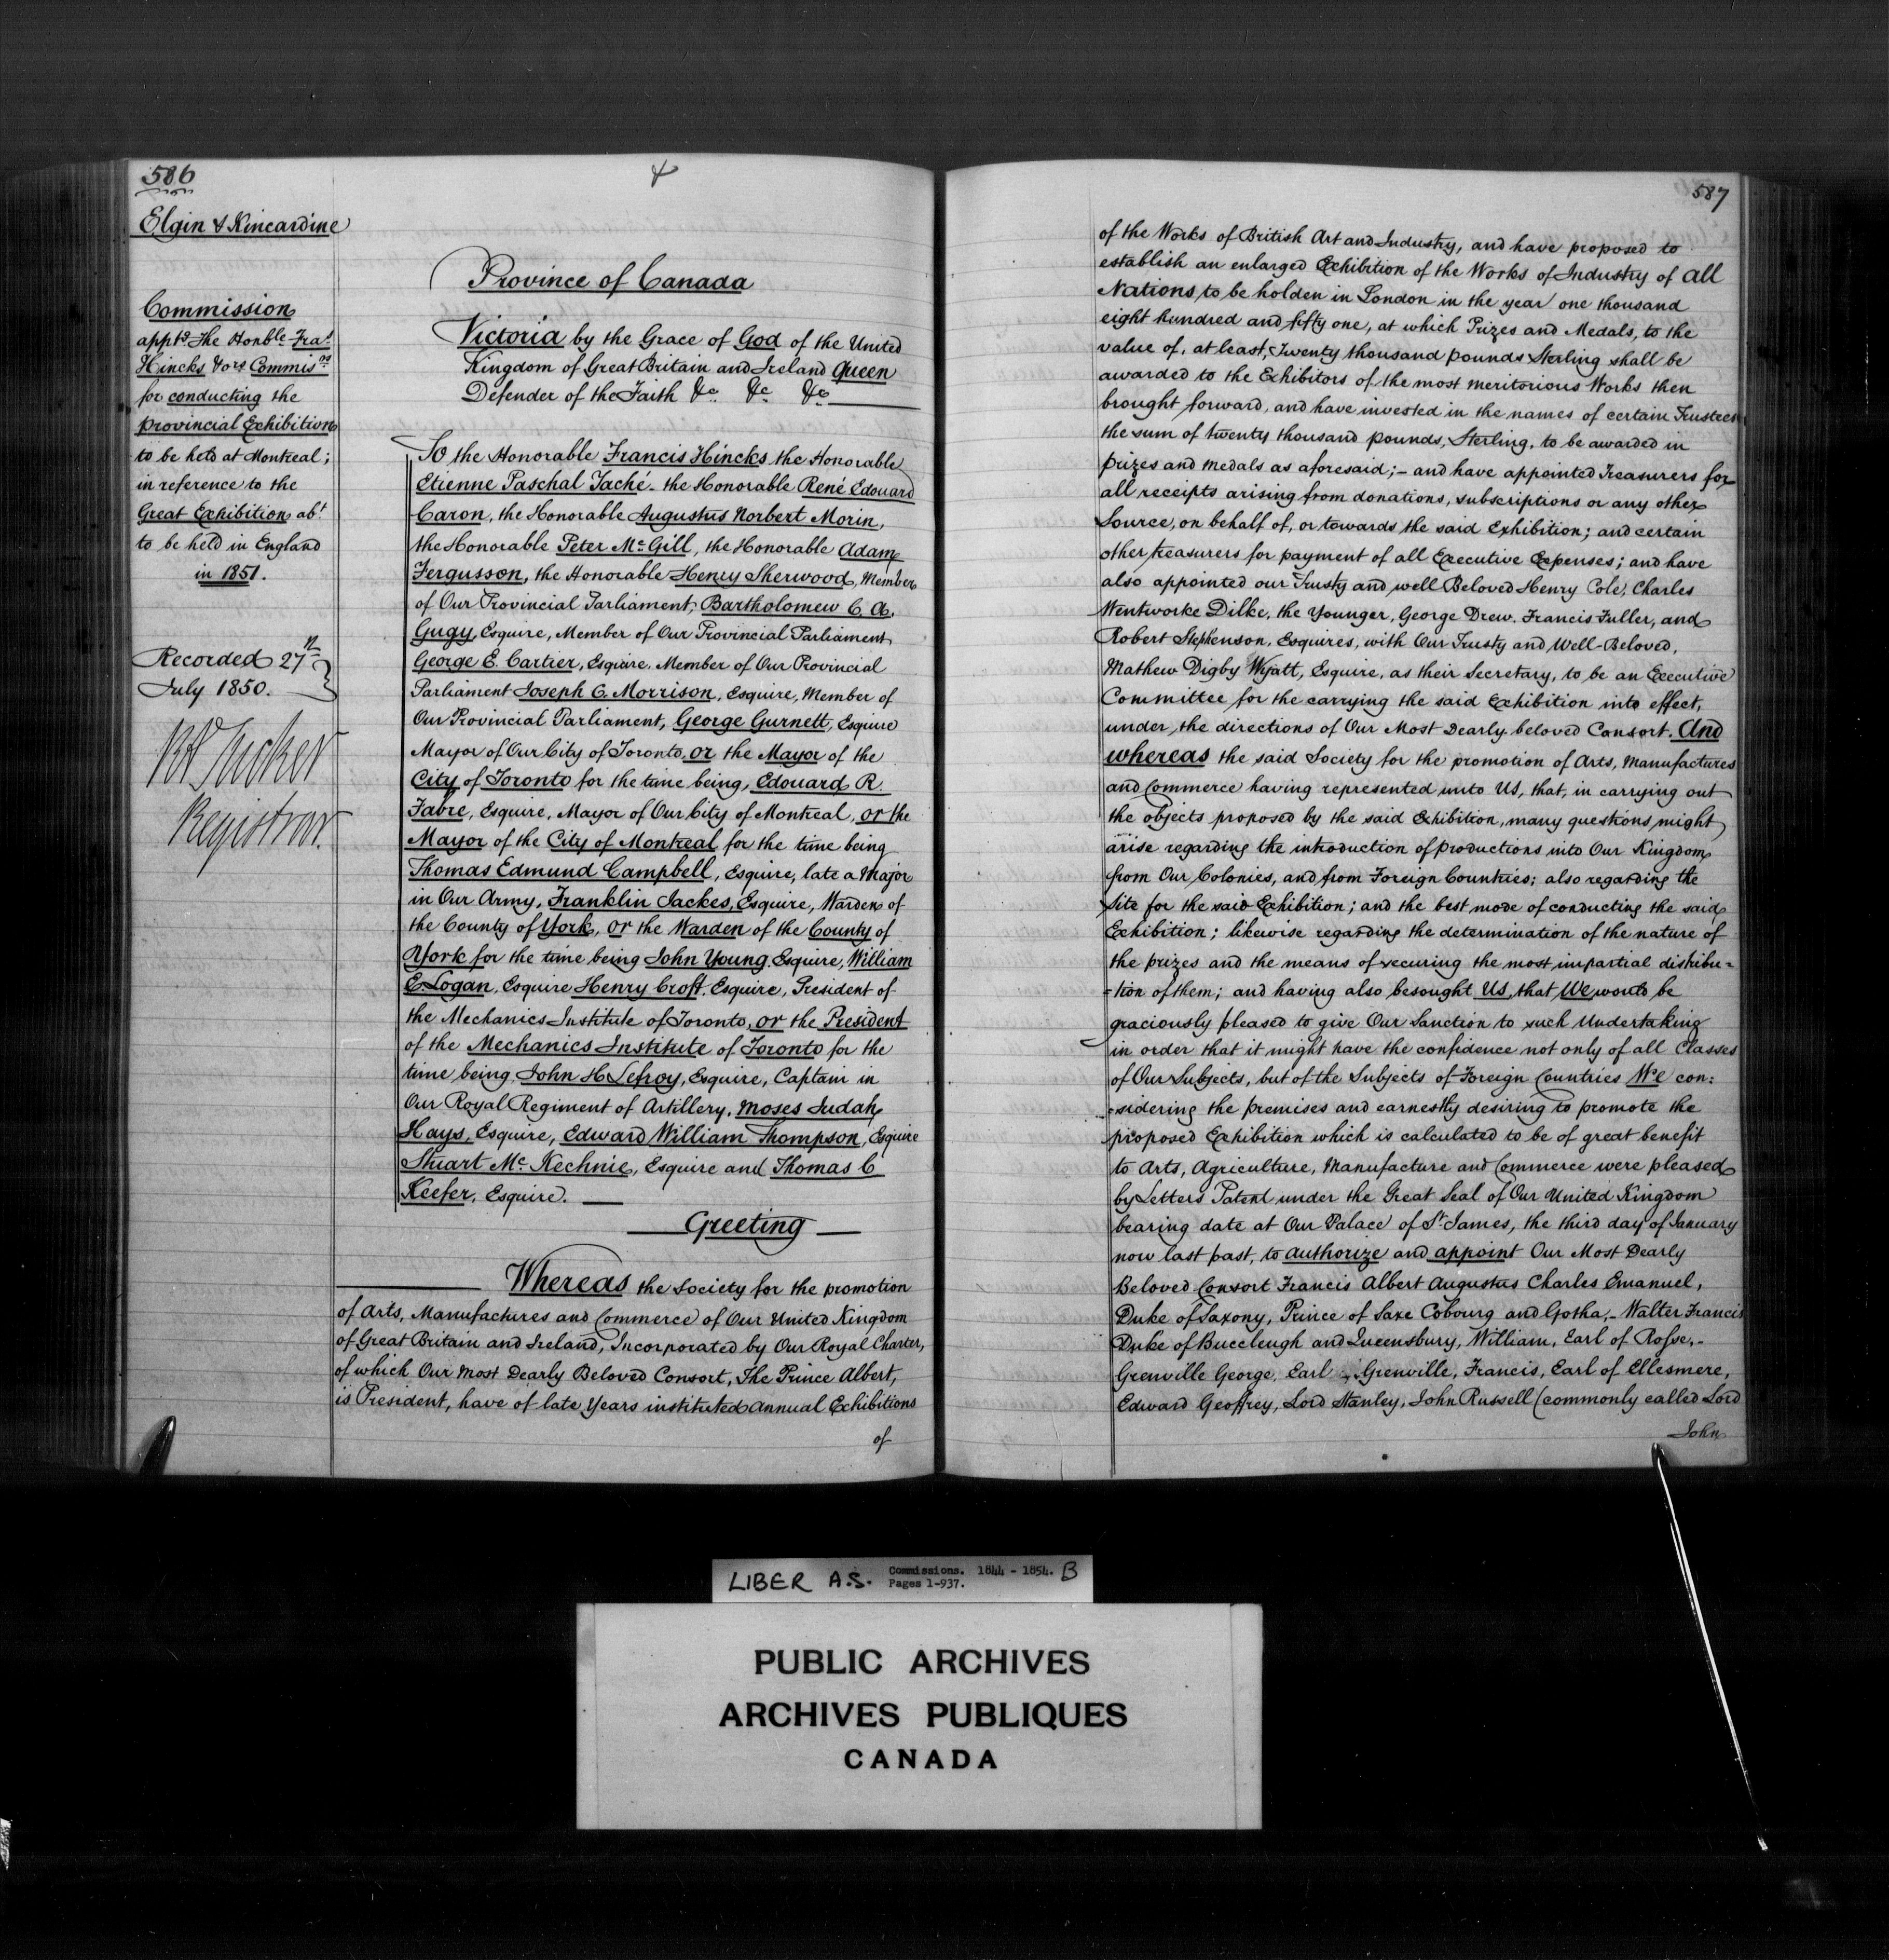 586
Elgin & Kincardine
Commission
appt.d The Honble. Fra.s
Hincks & ors Commis.rs
for conducting the
provincial Exhibition
to be held at Montreal;
in reference to the
Great Exhibition ab.t
to be held in England
in 1851.
Recorded 27th
July 1850.
Tucker
Registrar.
Province of Canada
Victoria by the Grace of God of the United
Kingdom of Great Britain and Ireland Queen
Defender of the Faith &c. &c. &c.
To the Honorable Francis Hincks the Honorable
Etienne Paschal Taché - the Honorable René Edouard
Caron, the Honorable Augustus Norbert Morin,
the Honorable Peter McGill, the Honorable Adam
Fergusson, the Honorable Henry Sherwood, Member
of Our Provincial Parliament, Bartholomew C. A.
Gugy, Esquire, Member of Our Provincial Parliament
George E. Cartier, Esquire, Member of Our Provincial
Parliament Joseph C. Morrison, Esquire, Member of
Our Provincial Parliament, George Gurnett, Esquire
Mayor of Our City of Toronto, or the Mayor of the
City of Toronto for the time being, Edouard R.
Fabre, Esquire, Mayor of Our City of Montreal, or the
Mayor of the City of Montreal for the time being
Thomas Edmund Campbell, Esquire, late a Major
in Our Army, Franklin Jackes, Esquire, Warden of
the County of York, or the Warden of the County of
York for the time being John Young, Esquire, William
E. Logan, Esquire Henry Croft, Esquire, President of
the Mechanics Institute of Toronto, or the President
of the Mechanics Institute of Toronto for the
time being, John H Lefroy, Esquire, Captain in
Our Royal Regiment of Artillery, Moses Judah
Hays, Esquire, Edward William Thompson, Esquire
Stuart Mc Kechnie, Esquire and Thomas C
Keefer, Esquire.
Greeting
Whereas the Society for the promotion
of Arts, Manufactures and Commerce of Our United Kingdom
of Great Britain and Ireland, Incorporated by Our Royal Charter,
of which Our Most Dearly Beloved Consort, The Prince Albert,
is President, have of late Years instituted annual Exhibitions
of
587
of the Works of British Art and Industry, and have proposed to
establish an enlarged Exhibition of the Works of Industry of all
Nations to be holden in London in the year one thousand
eight hundred and fifty one, at which Prizes and Medals, to the
value of, at least, Twenty thousand pounds Sterling shall be
awarded to the Exhibitors of the most meritorious Works then
brought forward, and have invested in the names of certain Trustees
the sum of twenty thousand pounds, Sterling, to be awarded in
prizes and medals as aforesaid; - and have appointed Treasurers for
all receipts arising from donations, subscriptions or any other
Source, on behalf of, or towards the said Exhibition; and certain
other treasurers for payment of all Executive Expenses; and have
also appointed our Trusty and well Beloved Henry Cole, Charles
Wentworke Dilke, the Younger, George Drew, Francis Fuller, and
Robert Stephenson, Esquires, with Our Trusty and Well-Beloved,
Mathew Digby Wyatt, Esquire, as their Secretary, to be an Executive
Committee for the carrying the said Exhibition into effect,
under the directions of Our Most Dearly beloved Consort. And
whereas the said Society for the promotion of Arts, Manufactures
and Commerce having represented unto Us, that, in carrying out
the objects proposed by the said Exhibition, many questions might
arise regarding the introduction of productions into Our Kingdom
from Our Colonies, and from Foreign Countries; also regarding the
Site for the said Exhibition; and the best mode of conducting the said
Exhibition; likewise regarding the determination of the nature of
the prizes and the means of securing the most impartial distribu=
=tion of them; and having also besought Us, that We would be
graciously pleased to give Our Sanction to such Undertaking
in order that it might have the confidence not only of all Classes
of Our Subjects, but of the Subjects of Foreign Countries We con:
=sidering the premises and earnestly desiring to promote the
proposed Exhibition which is calculated to be of great benefit
to Arts, Agriculture, Manufacture and Commerce were pleased
by Letters Patent under the Great Seal of Our United Kingdom
bearing date at Our Palace of St. James, the third day of January
now last past, to authorize and appoint Our Most Dearly
Beloved Consort Francis Albert Augustus Charles Emanuel,
Duke of Saxony, Prince of Saxe Cobourg and Gotha, - Walter Francis
Duke of Buccleugh and Queensbury, William, Earl of Rosse, -
Grenville George, Earl Grenville, Francis, Earl of Ellesmere,
Edward Geoffrey, Lord Stanley, John Russell (commonly called Lord
John
LIBER A.S. Commissions. 1844 - 1854. B
Pages 1-937.
PUBLIC ARCHIVES
ARCHIVES PUBLIQUES
CANADA